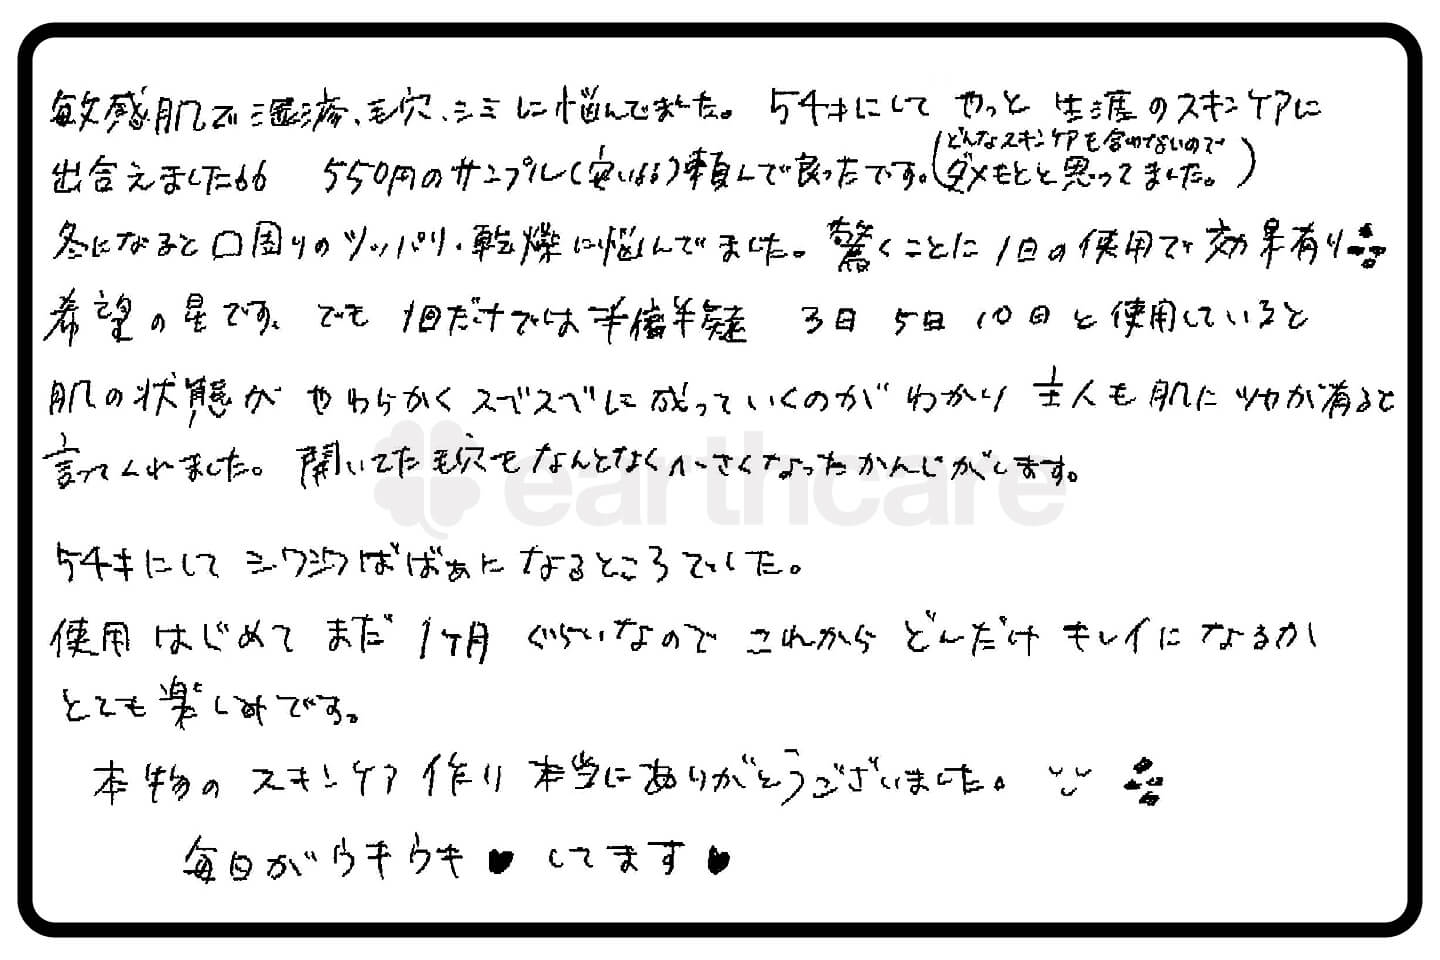 敏感肌で湿疹、毛穴、シミに悩んでました。 54才にして やっと 生涯のスキンケアに
出合えました 550円のサンプル(安い)頼んで良ったです。(どんなスキンケアも合わないので
ダメもとと思ってました。)
冬になると口周りのツッパリ・乾燥に悩んでました。驚くことに1日の使用で効果有り
希望の星です。でも 1回だけでは半信半疑 3日 5日 10日と使用していると
肌の状態が やわらかくスベスベに成っていくのがわかり 主人も肌にツヤが有ると
言ってくれました。開いてた毛穴もなんとなく小さくなったかんじがします。
earthcare
54才にして シワシワばばぁになるところでした。
使用はじめて まだ 1ヶ月 ぐらいなので これから どんだけ キレイに なるか
とても楽しみです。
本物の スキンケア 作り 本当にありがとうございました。
毎日がウキウキ♥してます♥